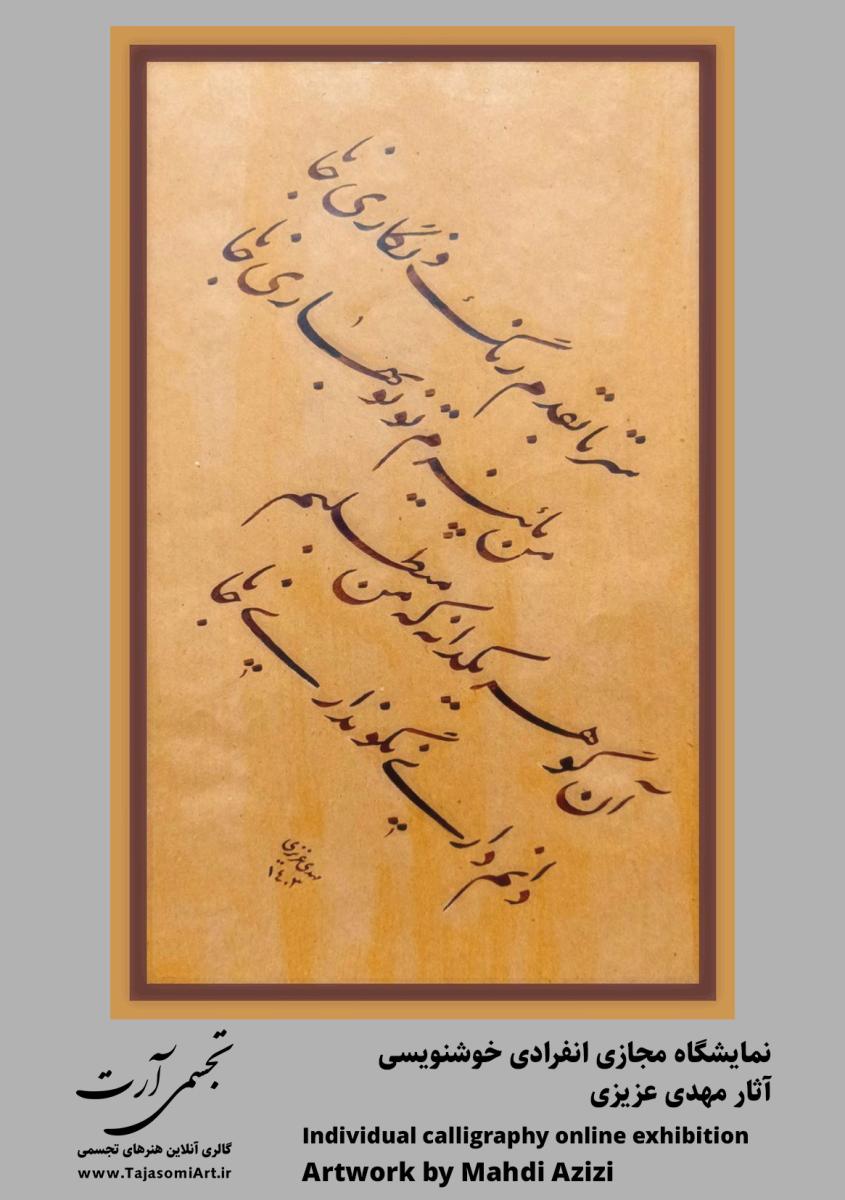 سر تا بقدم رنگ و نگاری جانا
من پائیزم تو نوبهاری جانا
آن گوهر یکدانه که من میطلبم
دانم داری نگو نداری جانا
مهدی عزیزی
نمایشگاه مجازی انفرادی خوشنویسی
آثار مهدی عزیزی
Individual calligraphy online exhibition
Artwork by Mahdi Azizi
تجسمی آرت
گالری آنلاین هنرهای تجسمی
www.TajasomiArt.ir